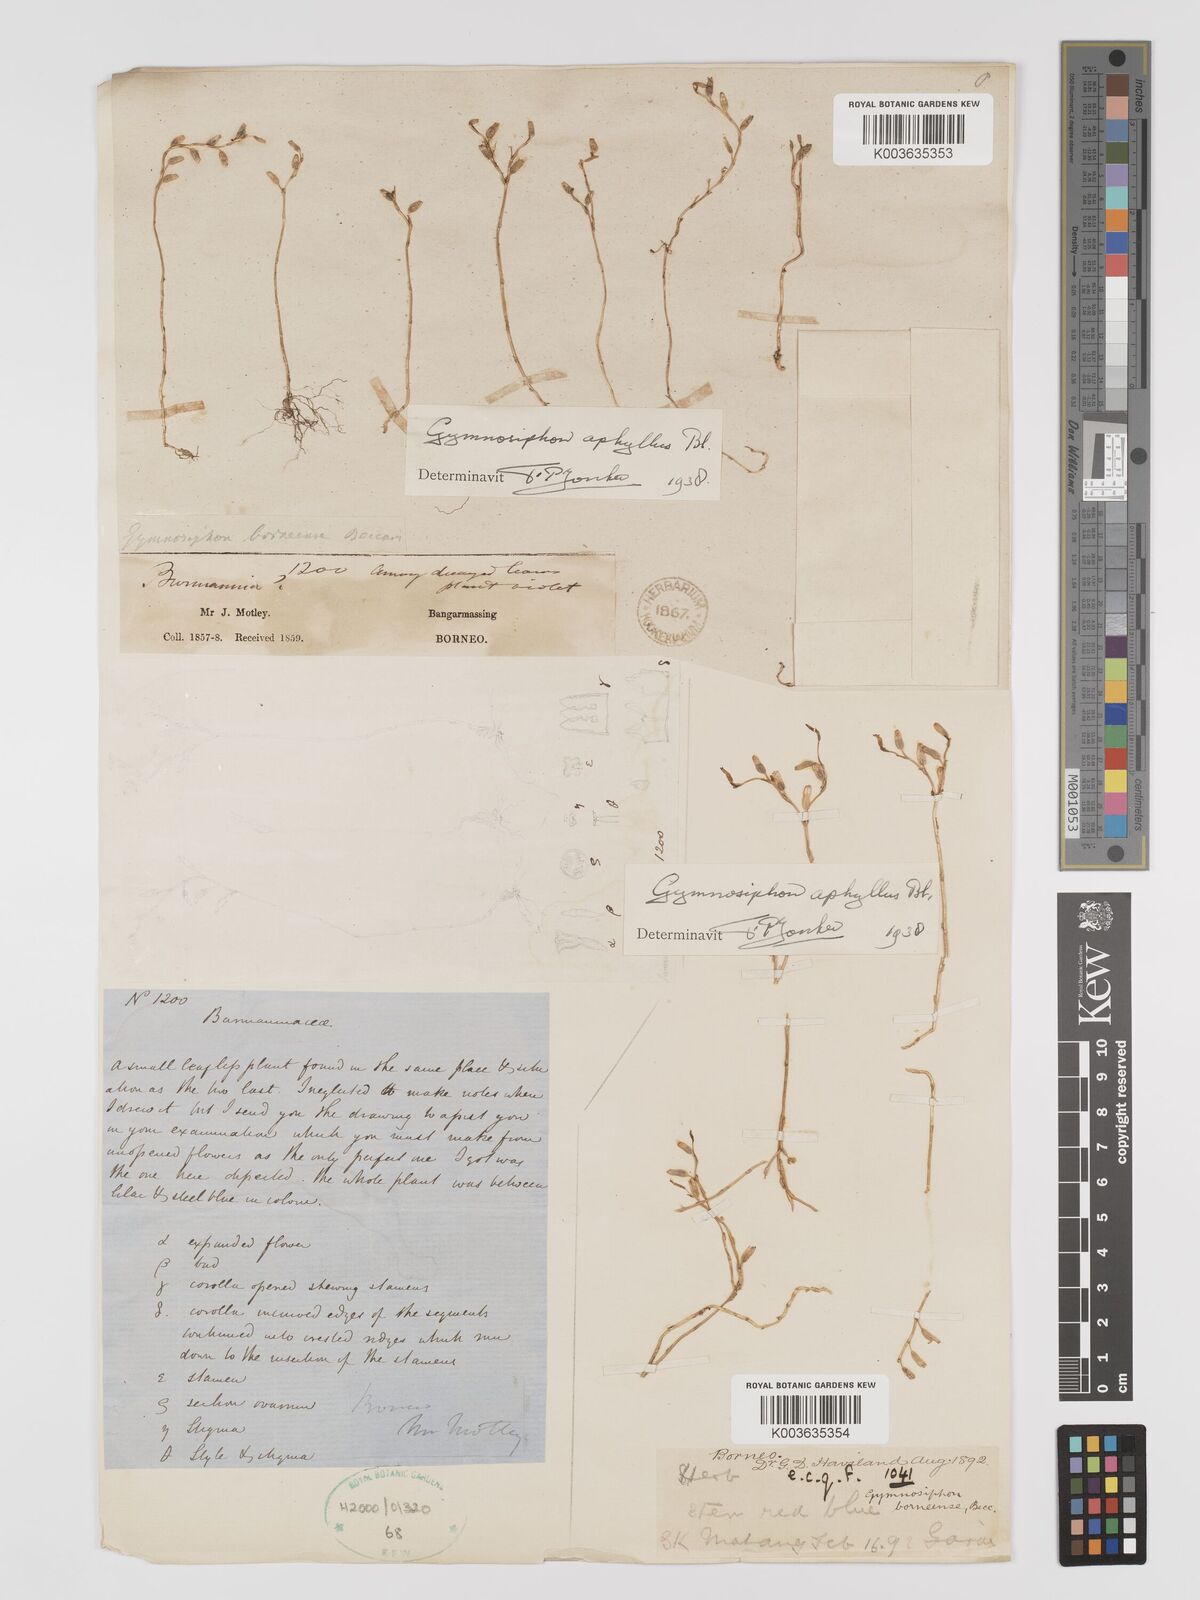 ROYAL BOTANIC GARDENS KEW
K003635353
Gymnosiphon aphyllus Bl.
Determinavit F. P. Jonker 1938.
Gymnosiphon borneense Beccari
Burmannia? 1200 Among decayed leaves
plant violet
Mr J. Motley. Bangarmassing
Coll. 1857-8. Received 1859. BORNEO.
HERBARIUM
1867.
HOOKERIANUM
1200
Gymnosiphon aphyllus Bl.
Determinavit F. P. Jonker 1938
No 1200
Burmanniaceæ.
A small leafless plant found in the same place & situ
ation as the two last. I neglected to make notes when
I drew it but I send you the drawing to assist you
in your examination which you must make from
unopened flowers as the only perfect one I got was
the one here dissected. The whole plant was between
lilac & steel blue in colour.
α expanded flower
β bud
γ corolla opened shewing stamens
δ. corolla incurved edges of the segments
continued into crested ridges which run
down to the insertion of the stamens
ε stamen
ζ section ovarium
η Stigma
θ Style & stigma
Borneo
Mr Motley
ROYAL BOTANIC GARDENS
42000/01320
68
KEW
ROYAL BOTANIC GARDENS KEW
K003635354
Borneo.
Dr. G. D. Haviland Aug. 1892.
Herb e.c.q.f. 1041
Gymnosiphon
borneense, Becc.
stem red blue
SK Matang Feb 16. 92
inches
centimeters
Density
Don Williams
M001053
Kew
Royal Botanic Gardens
copyright reserved
0 1 2 3 4 5 6 7 8 9 10